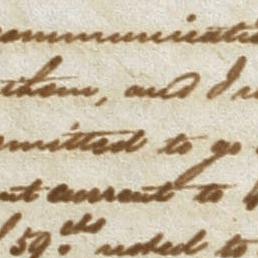 communicati
them, and I
mitted to go
nt current to
59. cts asked to